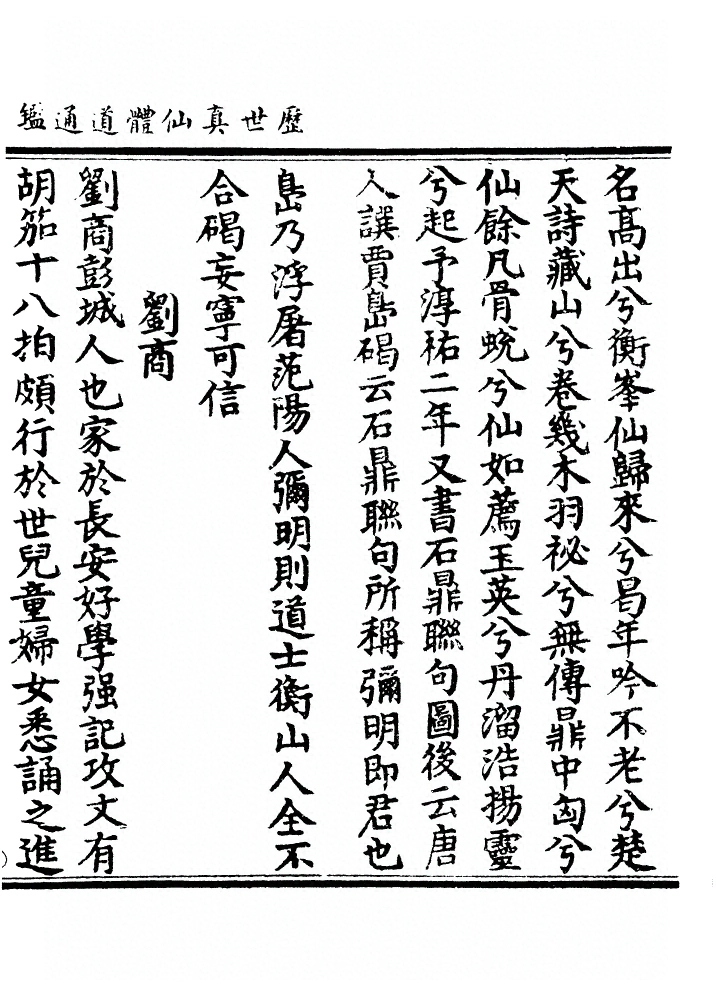 歷世真仙體道通鑑
名高出兮衡峯仙歸來兮曷年吟不老兮楚
天詩藏山兮卷幾木羽祕兮無傳鼎中匈兮
仙餘凡骨蛻兮仙如薦玉英兮丹溜浩揚靈
兮起予淳祐二年又書石鼎聯句圖後云唐
人譔賈島碣云石鼎聯句所稱彌明即君也
島乃浮屠范陽人彌明則道士衡山人全不
合碣妄寧可信
劉商
劉商彭城人也家於長安好學强記攻文有
胡笳十八拍頗行於世兒童婦女悉誦之進